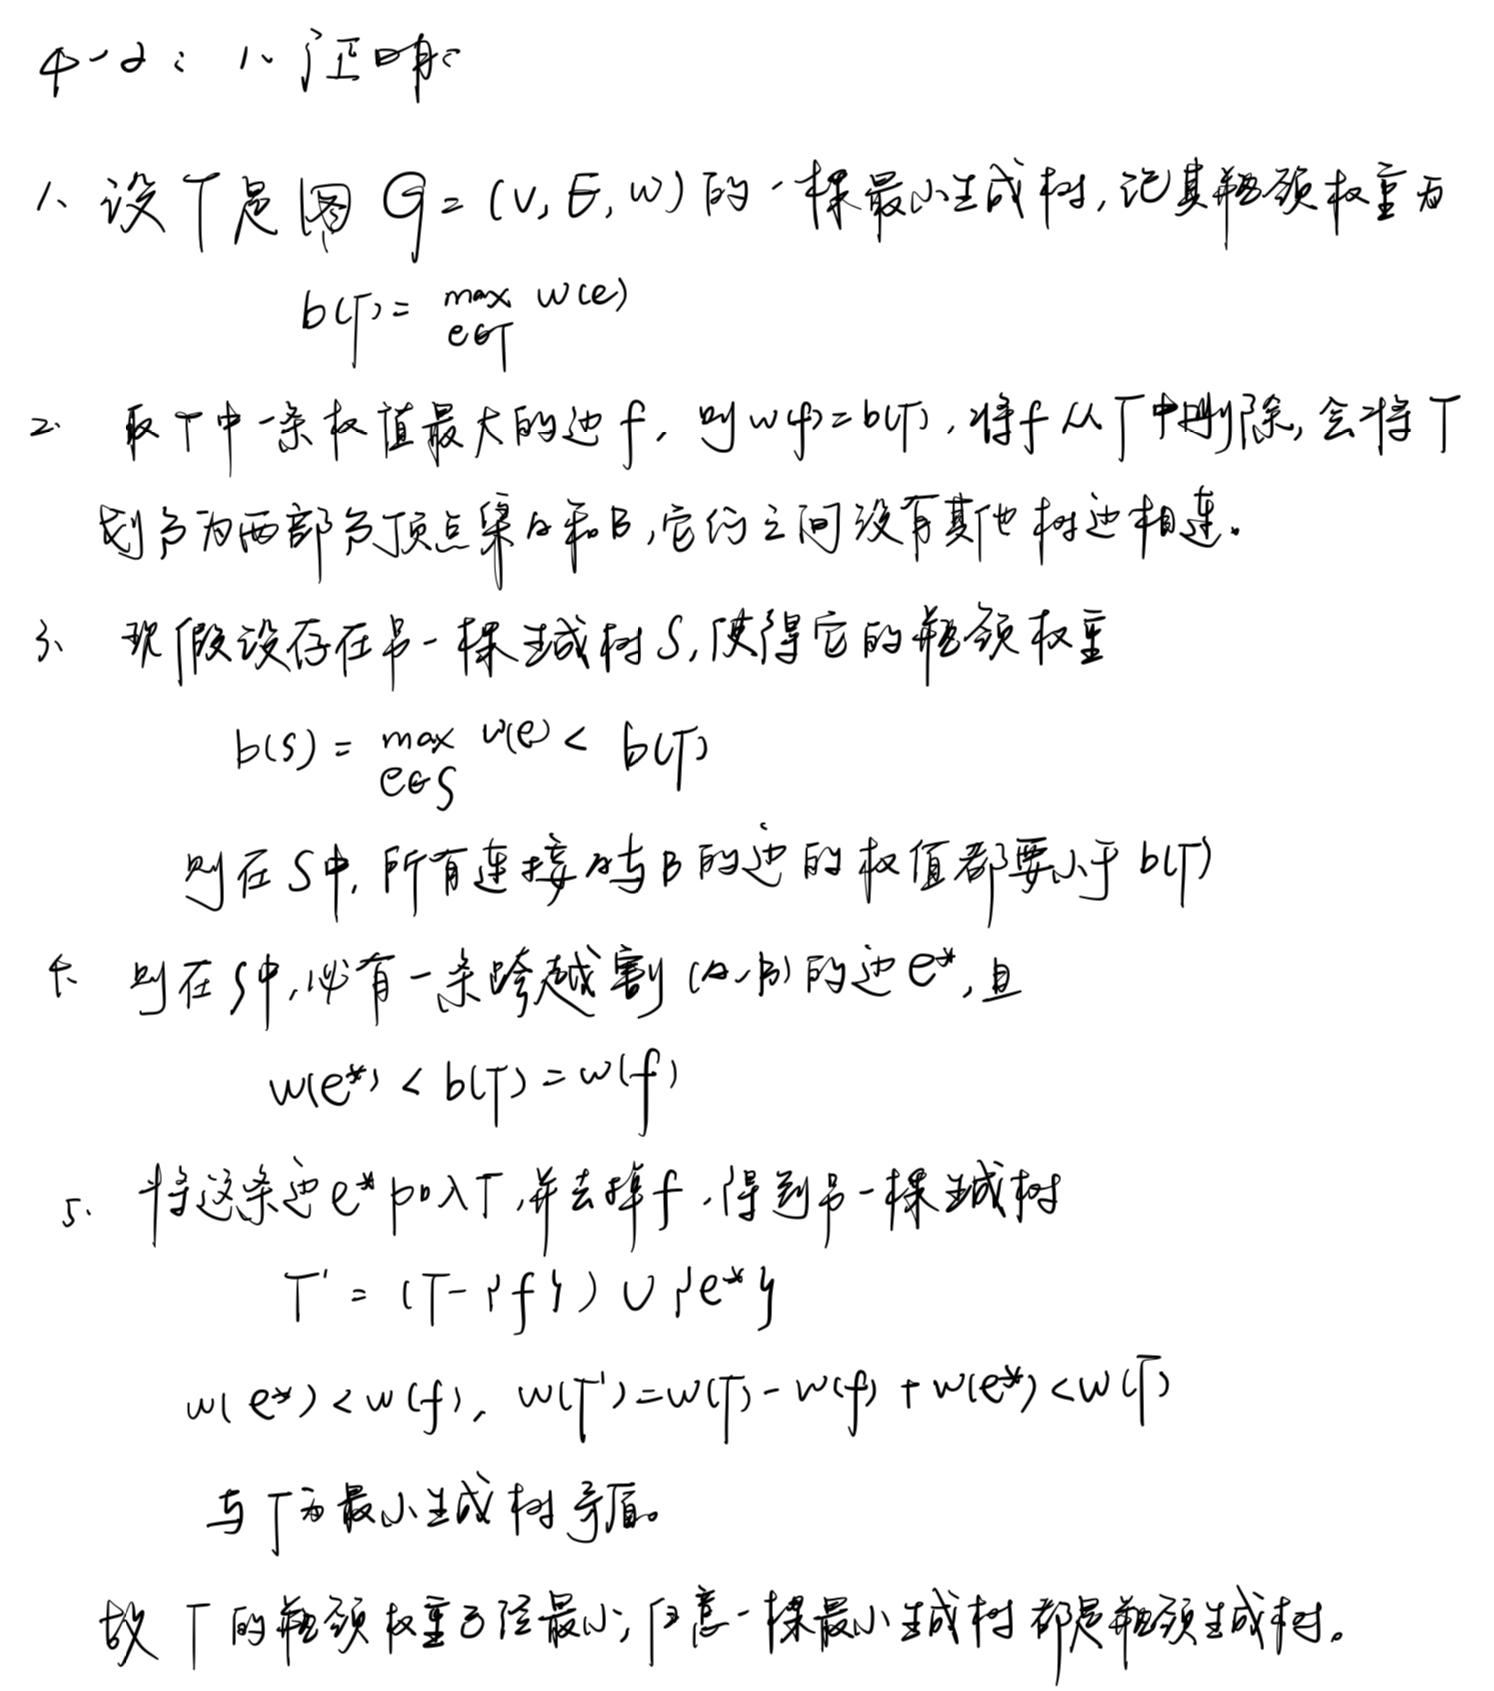 4-2: 1、证明:
1、设T是图 G=(V,E,w)的一棵最小生成树,记其瓶颈权重为
b(T)= max w(e)
e∈T
2、取T中一条权值最大的边f,则w(f)=b(T),将f从T中删除,会将T
划分为两部分顶点集A和B,它们之间没有其他树边相连。
3、现假设存在另一棵生成树S,使得它的瓶颈权重
b(S) = max w(e) < b(T)
e∈S
则在S中,所有连接A与B的边的权值都要小于b(T)
4、则在S中,必有一条跨越割(A,B)的边e*,且
w(e*) < b(T) = w(f)
5、将这条边e*加入T,并去掉f,得到另一棵生成树
T' = (T-{f}) ∪ {e*}
w(e*)<w(f), w(T')=w(T)-w(f)+w(e*)<w(T)
与T为最小生成树矛盾。
故T的瓶颈权重已经最小;任意一棵最小生成树都是瓶颈生成树。